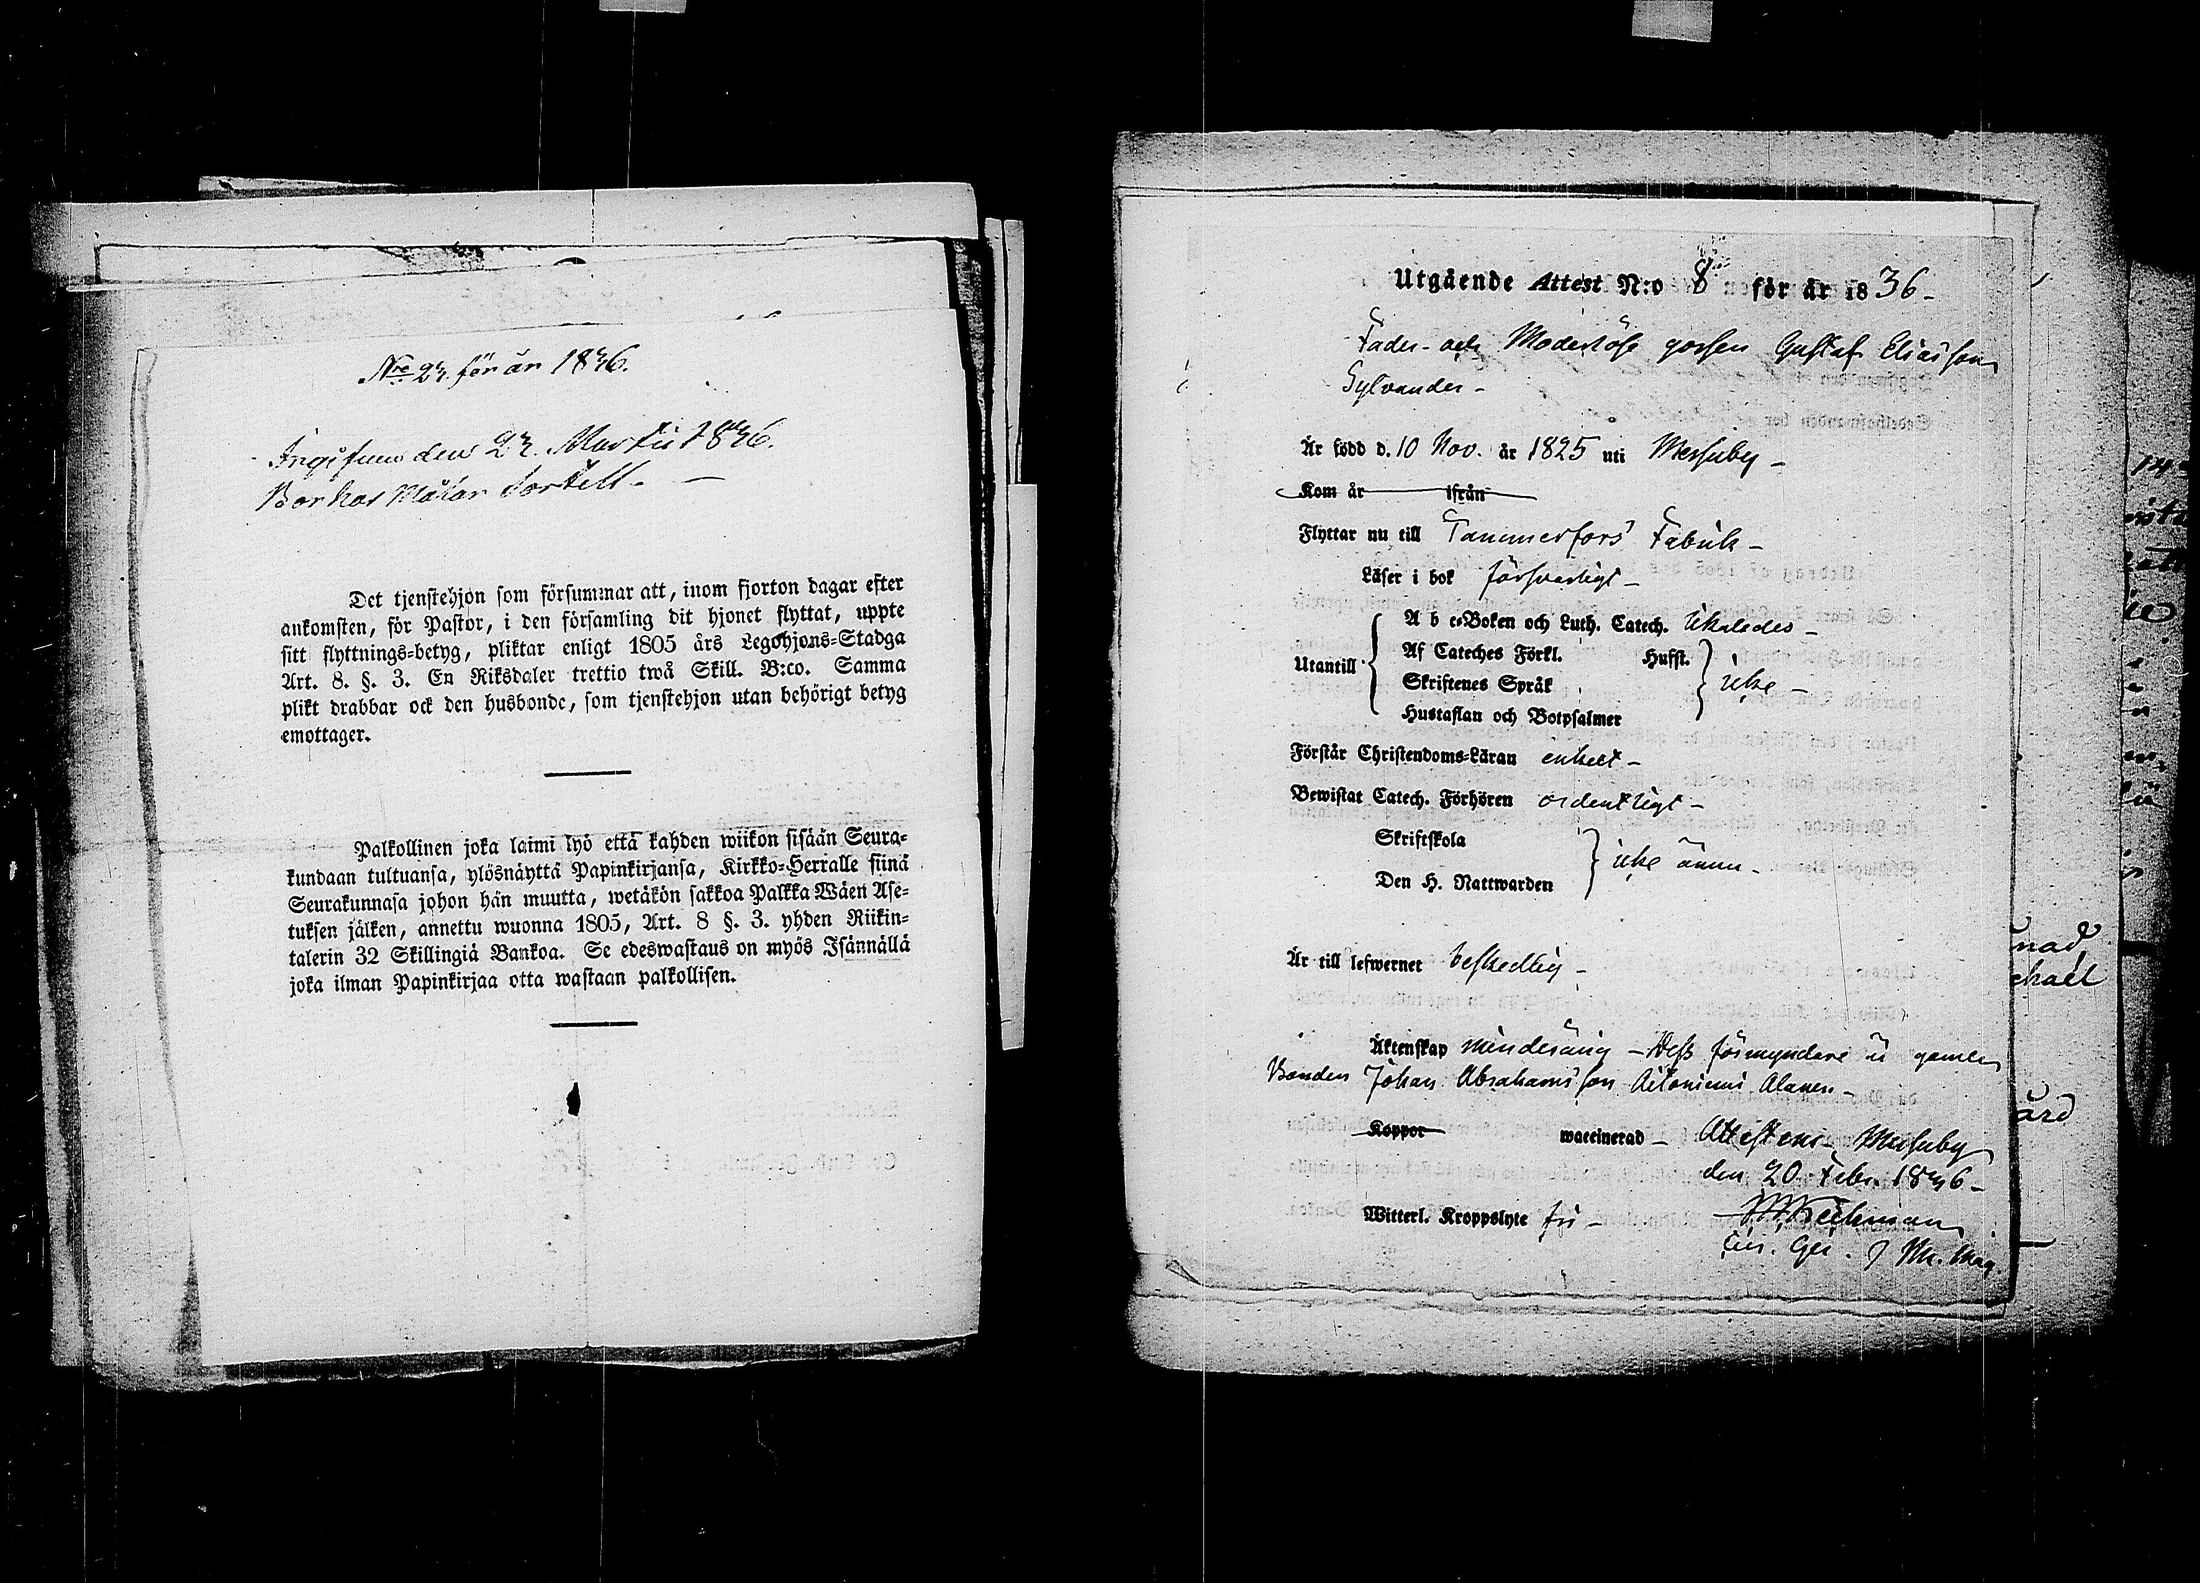 N:ro 23. för år 1836.
Ingifven den 23. Martii 1836.
Det tjenstehjon som försummar att, inom fjorton dagar efter
ankomsten, för Pastor, i den församling dit hjonet flyttat, uppte
sitt flyttnings-betyg, pliktar enligt 1805 års Legohjons-Stadga
Art. 8. §. 3. En Riksdaler trettio twå Skill. B:co. Samma
plikt drabbar ock den husbonde, som tjenstehjon utan behörigt betyg
emottager.
Palkollinen joka laimi lyö että kahden wiikon sisään Seura-
kundaan tultuansa, ylösnäyttä Papinkirjansa, Kirkko-Herralle siinä
Seurakunnasa johon hän muutta, wetäkön sakkoa Palkka Wäen Ase-
tuksen jälken, annettu wuonna 1805, Art. 8 §. 3. yhden Riikin-
talerin 32 Skillingiä Bankoa. Se edeswastaus on myös Isännällä
joka ilman Papinkirjaa otta wastaan palkollisen.
Utgående Attest N:o 8 för år 1836 -
Fader- och Moderlöse gossen Gustaf Eliasson
Sylvander -
Är född d. 10 Nov. år 1825 uti Messuby -
Kom år ifrån
Flyttar nu till Tammerfors Fabrik -
Läser i bok försvarligt -
A b c-Boken och Luth. Catech. likaledes -
Utantill Af Cateches Förkl. Husst.
Skriftenes Språk icke -
Hustaflan och Botpsalmer
Förstår Christendoms-Läran enkelt -
Bewistat Catech. Förhören ordentligt -
Skriftskola
icke ännu -
Den H. Nattwarden
Är till lefwernet beskedlig -
Äktenskap minderårig - Dess förmyndare är gamle
Bonden Johan Abrahamsson Alanen -
Koppor waccinerad - Attesterar Messuby
den 20 Febr. 1836 -
Witterl. Kroppslyte fri -